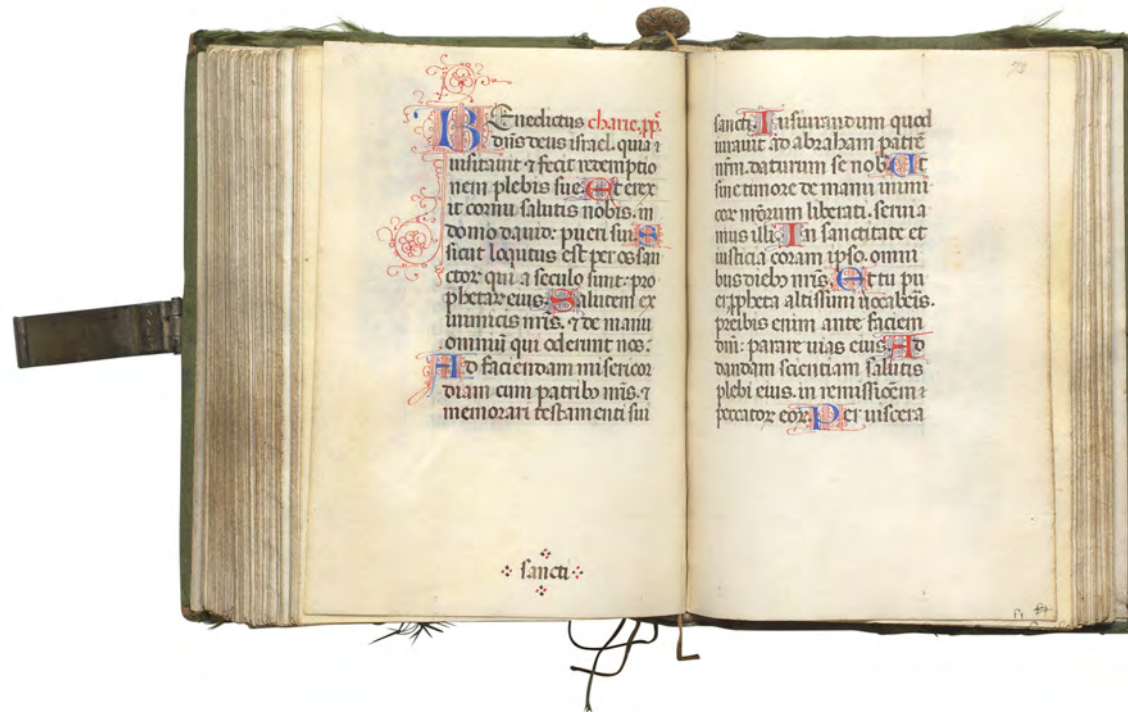 BEnedictus charie.pp̃.
dn̄s deus israel. quia ⁊
uisitauit ⁊ fecit redemptio
nem plebis sue. Et erex
it cornu salutis nobis. in
domo dauid: pueri sui. S
sicut loqutus est per os san
ctor qui a seculo sunt: pro
phetar eius. Salutem ex
inimicis nr̄is. ⁊ de manu
omniū qui oderunt nos:
Ad faciendam misericor
diam cum patribꝫ nr̄is. ⁊
memorari testamenti sui
sancti
sancti. Iusiurandum quod
iurauit ad abraham patrē
nr̄m. daturum se nob̄. Ut
sine timore de manu inimi
cor nr̄orum liberati. seruia
mus illi. In sanctitate et
iusticia coram ipso. omni
bus diebꝫ nr̄is. Et tu pu
er p̄pheta altissimi uocaberis.
preibis enim ante faciem
dn̄i: parare uias eius. Ad
dandam scientiam salutis
plebi eius. in remissiōem ⁊
peccator eor. Per uiscera